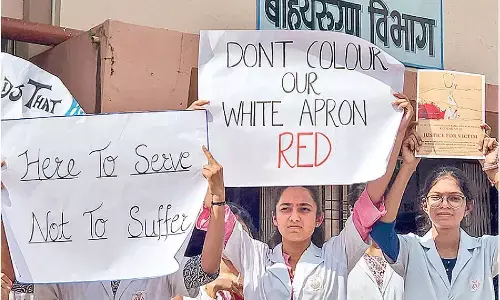 बाह्यरुग्ण विभाग
DS THAT
DONT COLOUR
OUR
WHITE APRON
RED
Here To Serve
Not To Suffer
JUSTICE FOR VICTIM